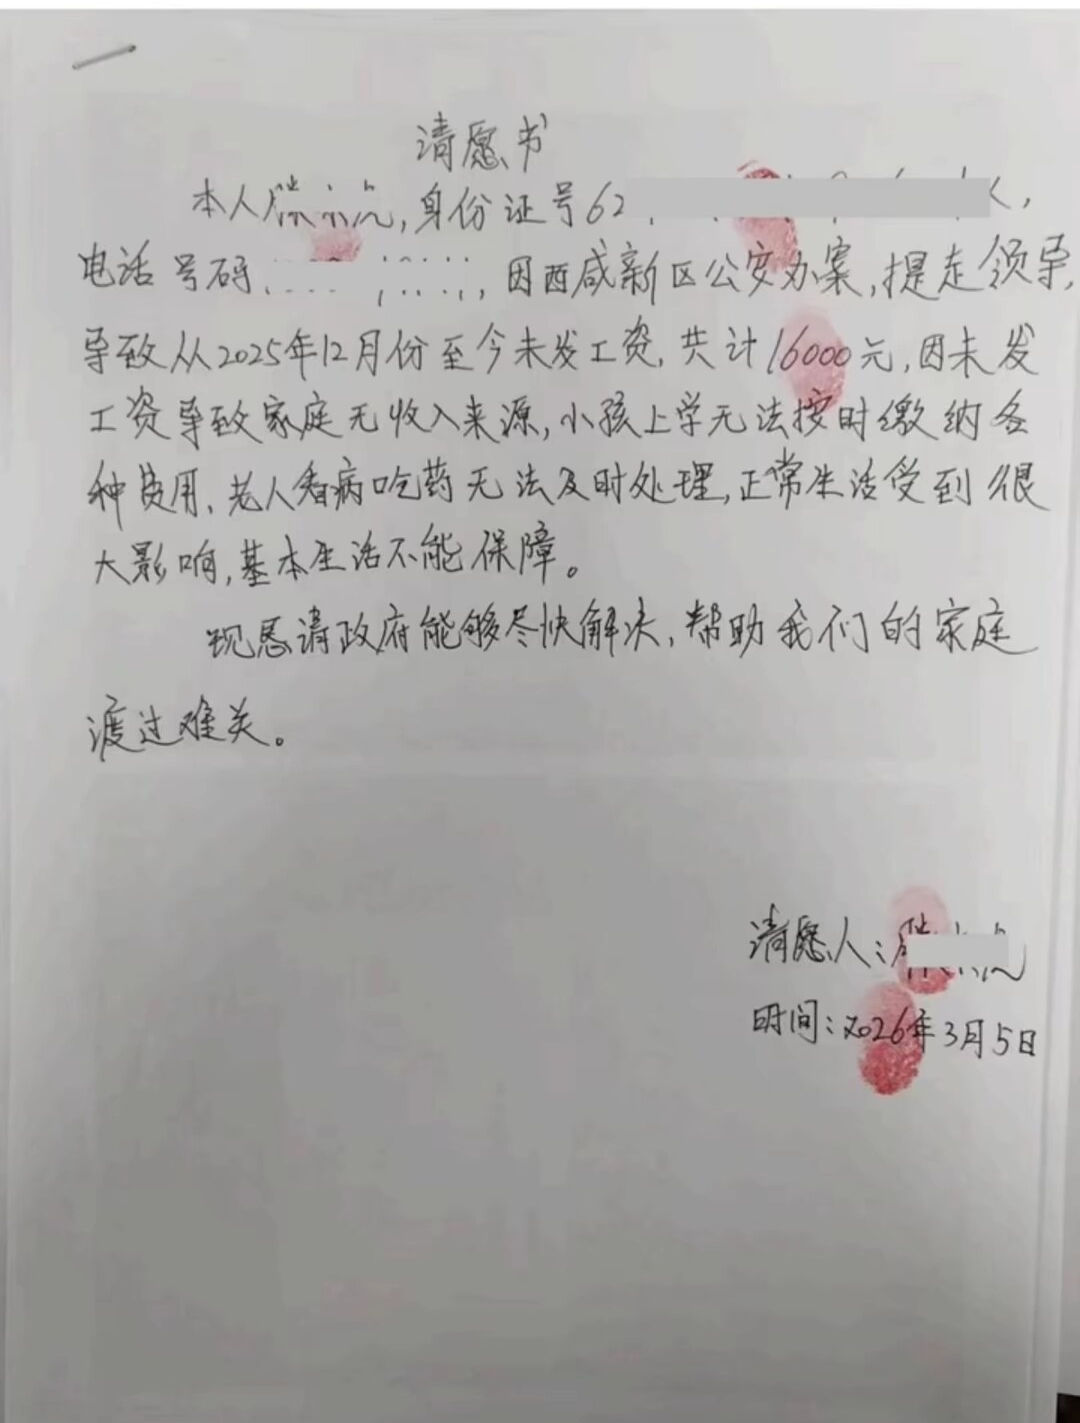 请愿书
本人滕,身份证号62
电话号码,因西咸新区公安办案,提走领导,
导致从2025年12月份至今未发工资,共计16000元,因未发
工资导致家庭无收入来源,小孩上学无法按时缴纳各
种费用、老人看病吃药无法及时处理,正常生活受到很
大影响,基本生活不能保障。
现恳请政府能够尽快解决,帮助我们的家庭
渡过难关。
请愿人:
时间:2026年3月5日